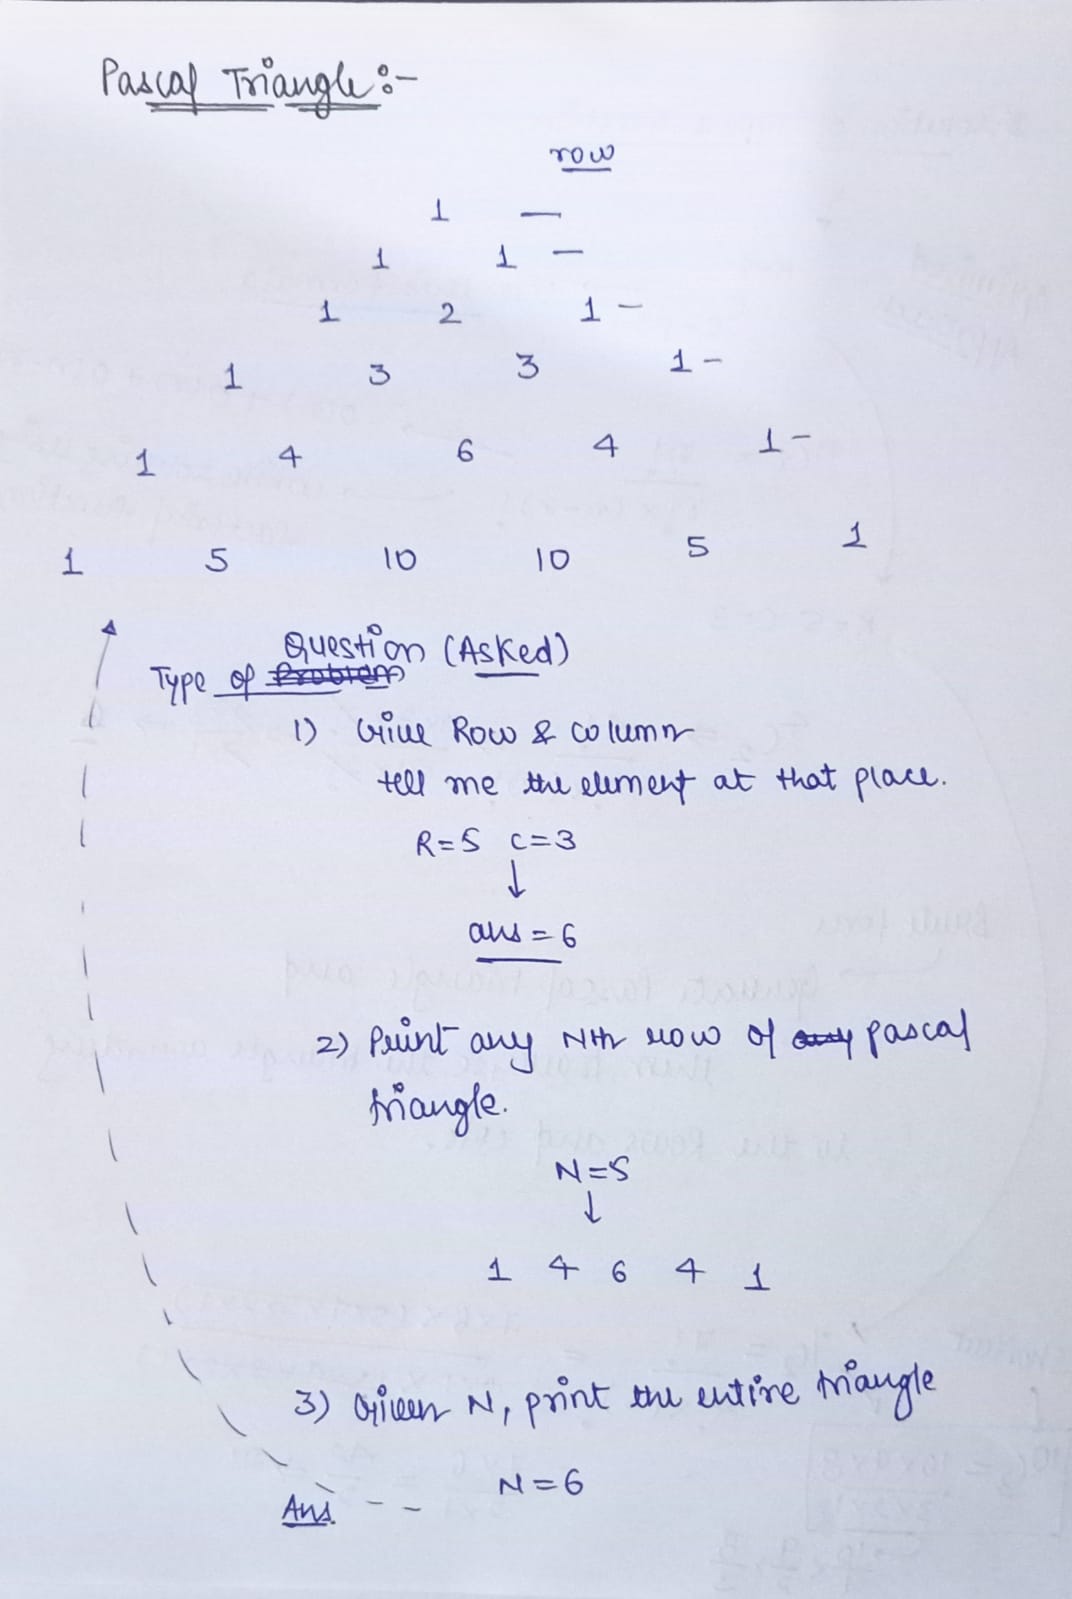 Pascal Triangle :-
row
1 —
1 1 —
1 2 1 —
1 3 3 1 —
1 4 6 4 1 —
1 5 10 10 5 1
Question (Asked)
Type of Problem
1) Give Row & column
tell me the element at that place.
R=5 C=3
↓
ans = 6
2) Print any Nth row of any pascal
triangle.
N=5
↓
1 4 6 4 1
3) Given N, print the entire triangle
N=6
Ans.